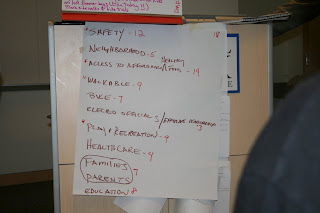 *SAFETY - 12
18
NEIGHBORHOOD - 5
HEALTHY
*ACCESS TO AFFORDABLE / FOOD - 19
*WALKABLE - 9
BIKE - 7
ELECTED OFFICIALS /
3
*PLAY & RECREATION - 9
HEALTHCARE - 9
FAMILIES
PARENTS
7
EDUCATION 8